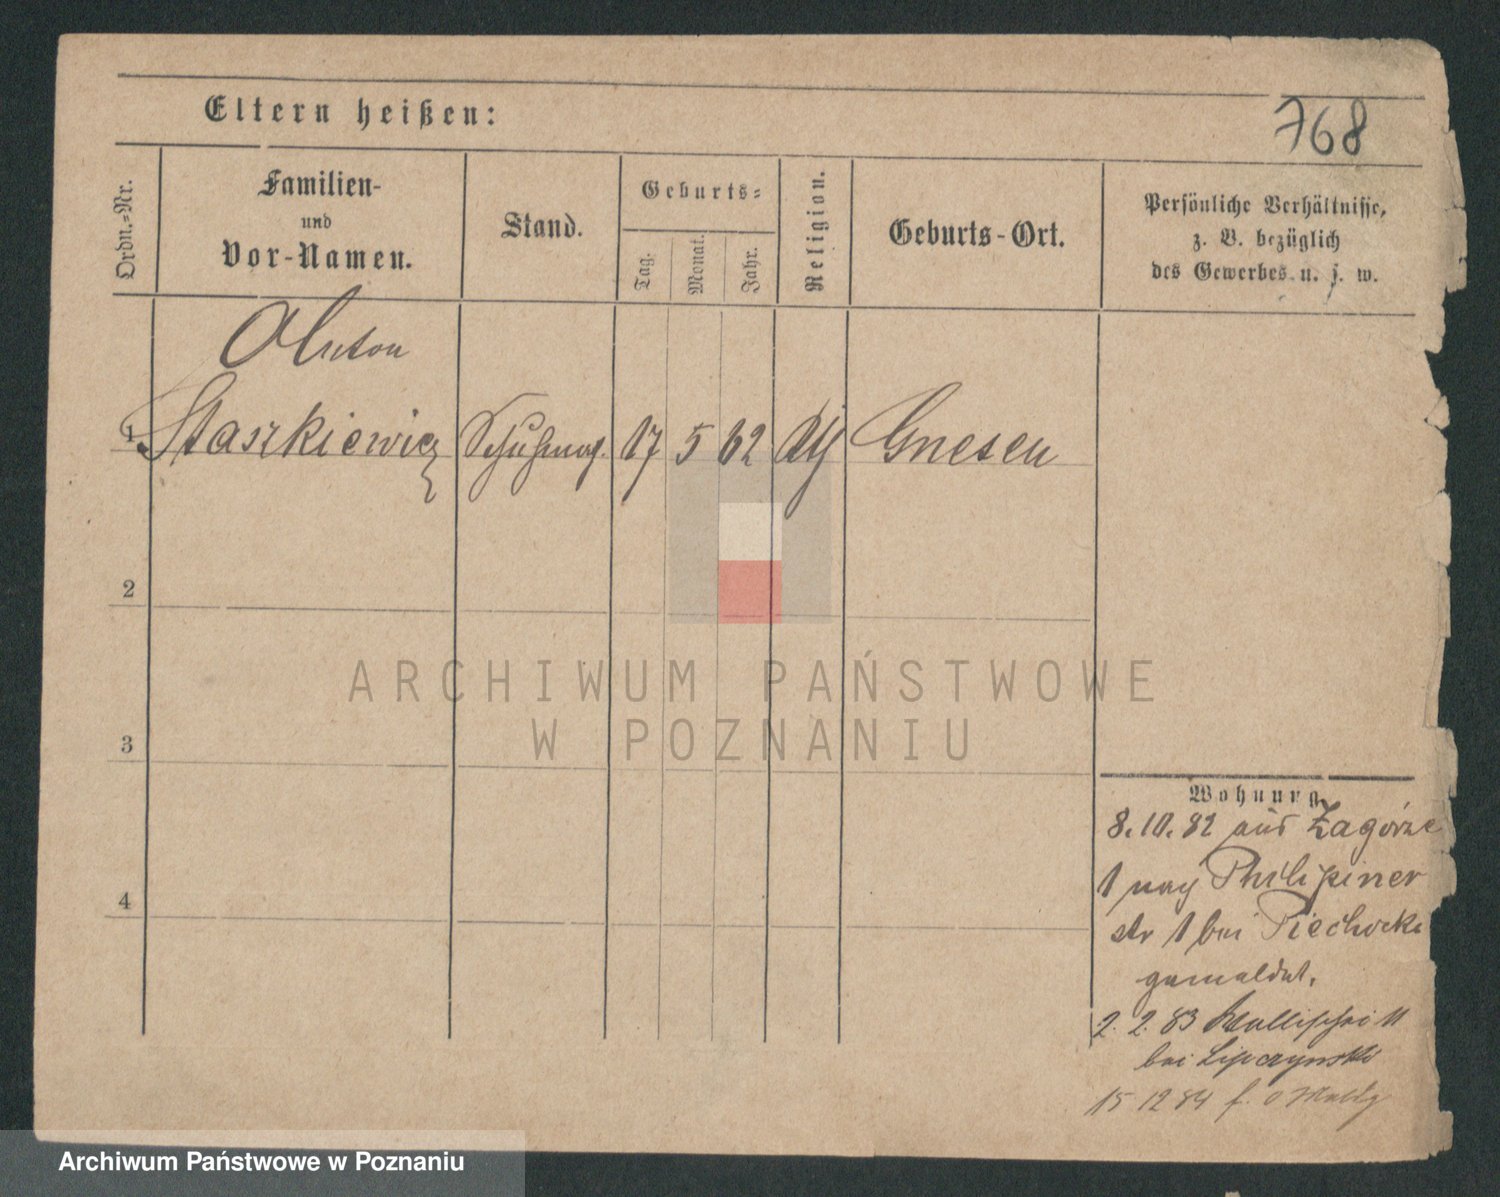 Eltern heißen:
768
Ordn.-Nr.
Familien-
und
Vor-Namen.
Stand.
Geburts-
Tag.
Monat.
Jahr.
Religion.
Geburts-Ort.
Persönliche Verhältnisse,
z. B. bezüglich
des Gewerbes u. s. w.
Anton
1 Staszkiewicz Schuhmach. 17 5 62 Gnesen
2
ARCHIWUM PAŃSTWOWE
W POZNANIU
3
4
Wohnung
8.10.82 aus Zagórze
1 nach Philipiner
str 1 bei Piechocki
gemeldet.
2. 2. 83 Wallischei 11
bei Lipczynski
15 12 84
Archiwum Państwowe w Poznaniu